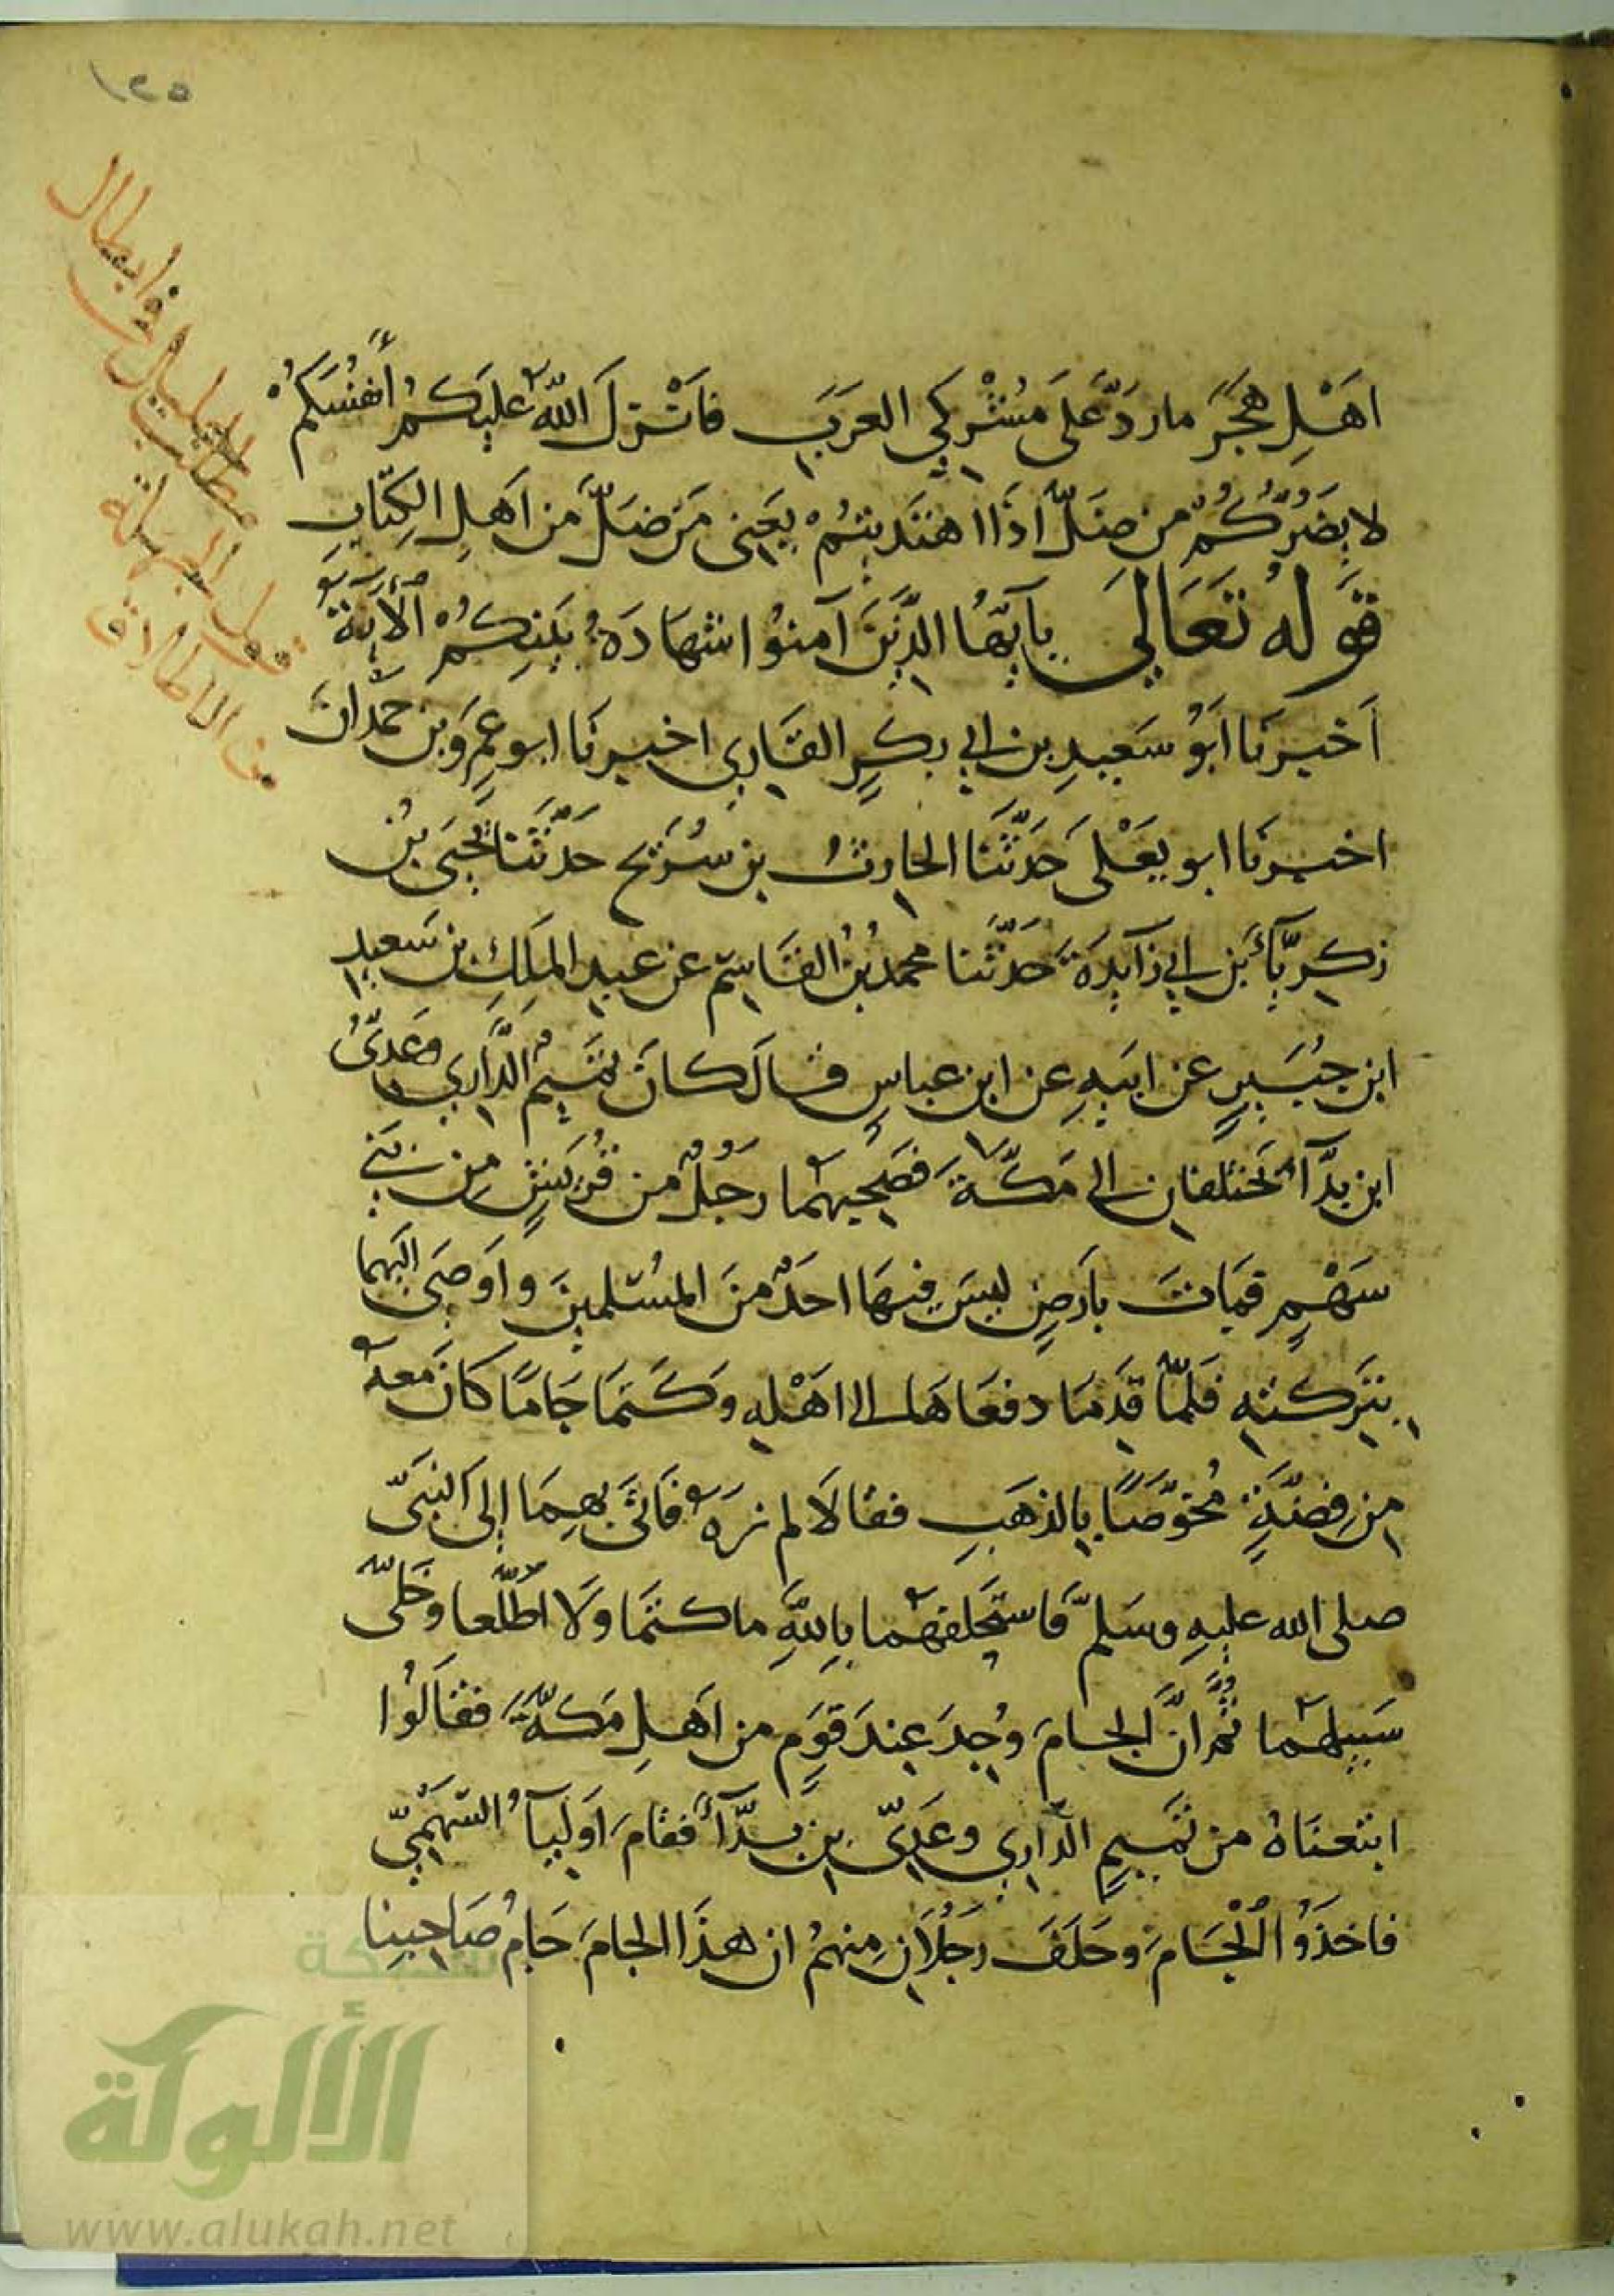 ١٢٥
اَهْلِ هَجَرَ ما ردَّ عَلَى مُشْركي العَرَبِ فاَنْزلَ اللّهُ عليَكمُ أَنفُسَكمُ
لا يَضُرُّكُم من ضَلّ اذَا اهْتَدَيْتُمْ يعَني مَن ضَلَّ من اَهلِ الكِتَابِ
قَولهُ تَعَالىَ يآيّهَا الذَّينَ آمنوُا شهَادَةُ بَيْنِكُمْ الآيَةَ
اَخبرنَا اَبوُ سَعيدِ بن ابي بكرٍ القَاري اخبرنَا ابو عمِرَو بن حَمْدَانَ
اخبرنَا ابو يعَلى حَدَّثَنا الحارثُ بن سُرَيج حَدّثَنا يَحْيَى بْن
زكريَّأَ بَن ابي زَآيدَةَ حَدّثَنا محمد بْنُ القاسِم عن عبد الملَكِ بن سَعيدِ
ابن جبَيرٍ عن ابيَهِ عن ابن عباسٍ قالَ كانَ تميَمُ الدَّاري وَعَديُّ
ابن بدَّآ يَختَلفان الى مَكَّةَ فصَحبهُما رَجُلٌ من قُرَيشٍ مِن بَني
سَهْمٍ فمَاتَ بأرَضٍ ليسَ فيهَا احَدٌ منَ المسُلمينَ وأوَصَى اليَهما
بتَركتهِ فَلمّا قَدمَا دفعَاهَا الى اهَلهِ وَكَتَمَا جَامًا كانَ معَهُ
من فِضَّةٍ مُخوَّصًا بالذهَبِ فقالاَ لم نرَهُ فأتَى بهمَا إلى النبَيّ
صلى الله عليهِ وسَلمّ فاستحَلفهُما باللهِ ما كتَمَا ولا اطّلعا وخَلّى
سَبيلهُما ثُمَّ انَّ الجامَ وُجدَ عِندَ قوَمٍ من اهَلِ مَكةَّ فقالَوُا
ابتعنَاهُ من تميَمٍ الدّاري وعَديّ بن بدّآ فقامَ اوَليآُ السّهَميّ
فاخذَوُا الْجَامَ وحَلَفَ رَجُلاَنِ مِنهمُ ان هذَا الجامَ جَامُ صَاحِبِنا
شبكة
الألوكة
www.alukah.net